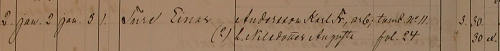 2. jan. 2 jan. 3 1. Ture Einar Andersson Karl Fr., arb., tomt No 11. 3. 30.
(2) h. Nilsdotter Augusta fol. 24. 30